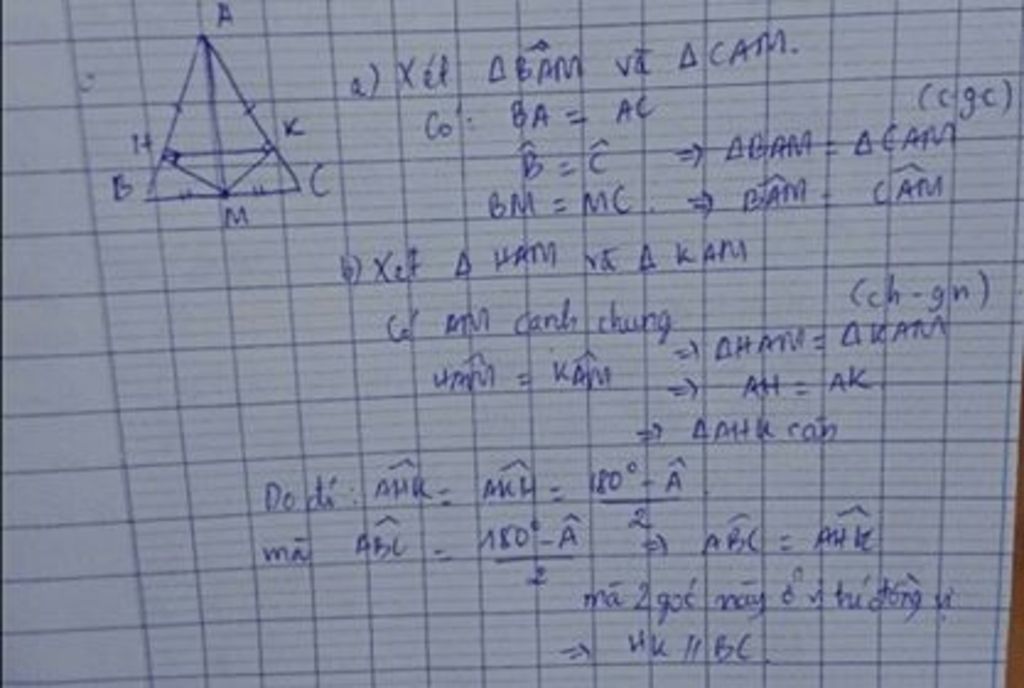 A
H
K
B
C
M
a) Xét Δ BAM và Δ CAM.
Có: BA = AC (cgc)
B̂ = Ĉ => ΔBAM = ΔCAM
BM = MC. => BÂM = CÂM
b) Xét Δ HAM và Δ KAM
Có AM cạnh chung (ch-gn)
=> ΔHAM = ΔKAM
HÂM = KÂM => AH = AK
=> ΔAHK cân
Do đó: AĤK = AK̂H = (180° - Â)/2
mà AB̂C = (180° - Â)/2 => AB̂C = AĤK
mà 2 góc này ở vị trí đồng vị
=> HK // BC.